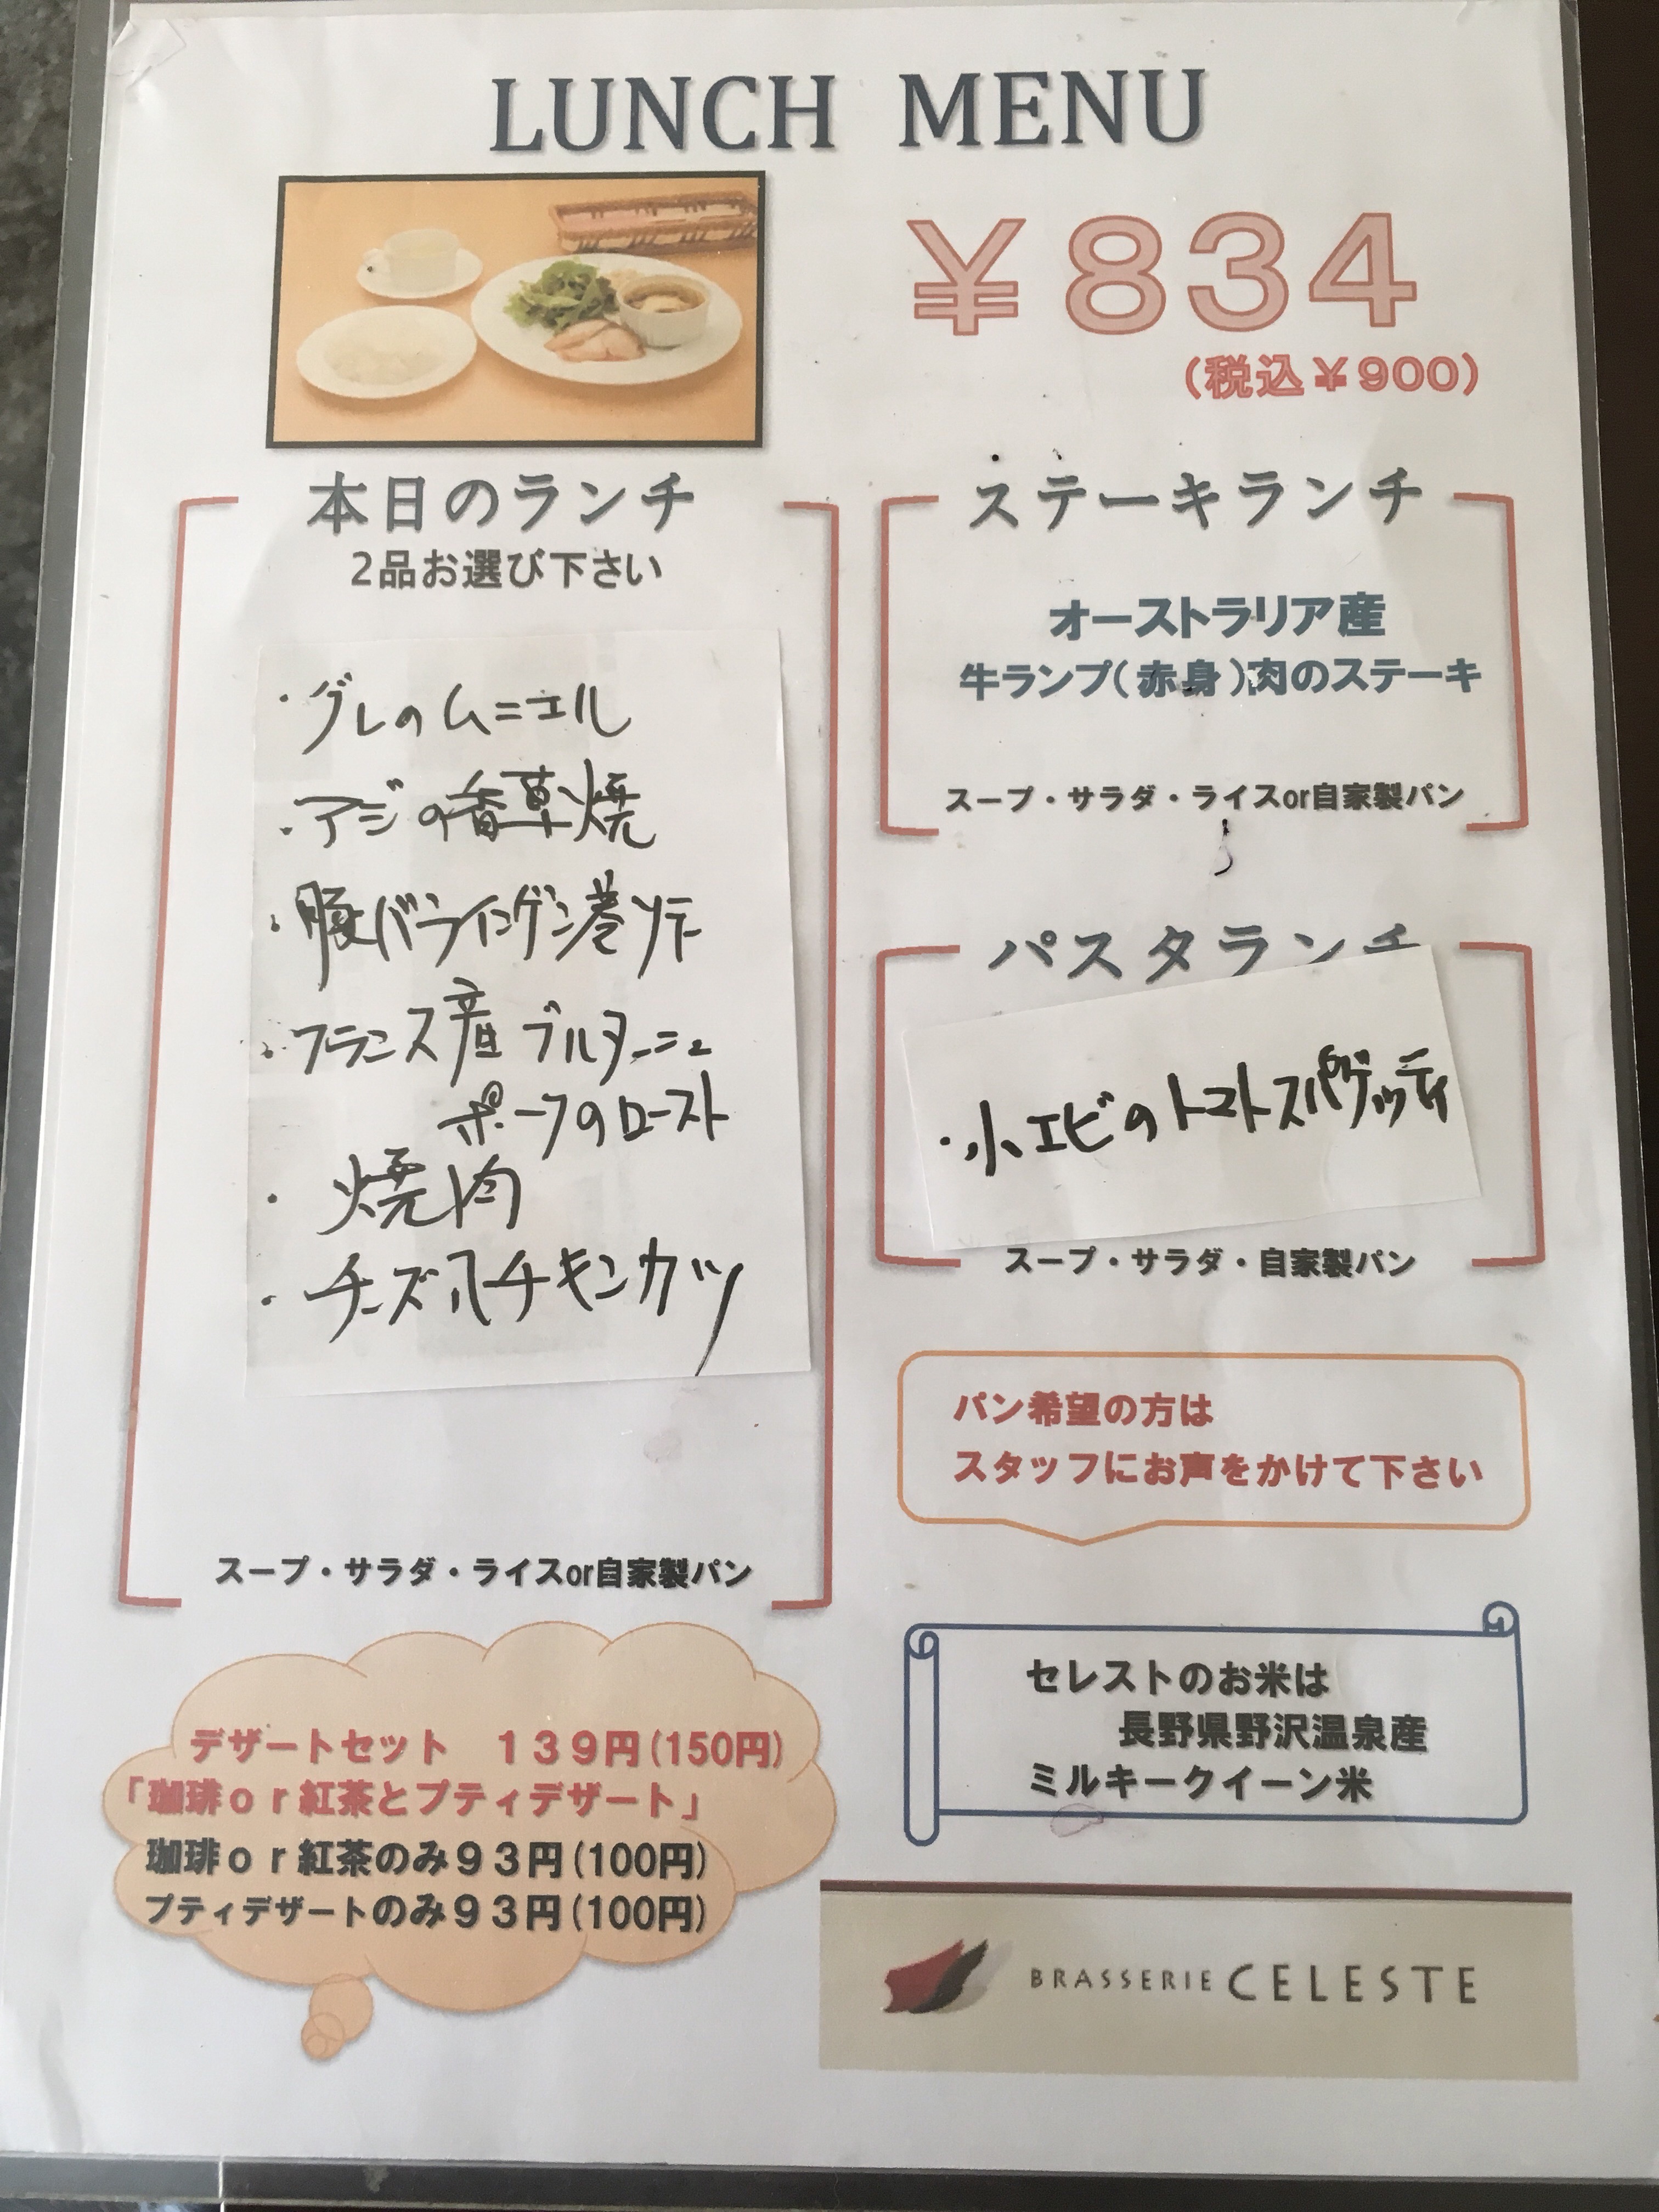 LUNCH MENU
￥834
(税込￥900)
本日のランチ
2品お選び下さい
・グレのムニエル
・アジの香草焼
・豚バラインゲン巻ソテー
・フランス産ブルターニュ
ポークのロースト
・焼肉
・チーズ入チキンカツ
スープ・サラダ・ライスor自家製パン
ステーキランチ
オーストラリア産
牛ランプ(赤身)肉のステーキ
スープ・サラダ・ライスor自家製パン
パスタランチ
・小エビのトマトスパゲッティ
スープ・サラダ・自家製パン
パン希望の方は
スタッフにお声をかけて下さい
デザートセット　139円(150円)
「珈琲or紅茶とプティデザート」
珈琲or紅茶のみ93円(100円)
プティデザートのみ93円(100円)
セレストのお米は
長野県野沢温泉産
ミルキークイーン米
BRASSERIE CELESTE